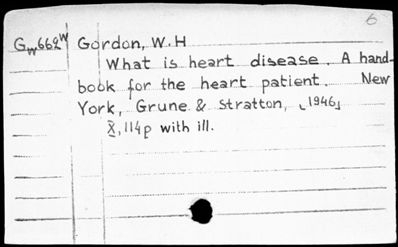 6
Gw662W Gordon, W.H
What is heart disease. A hand-
book for the heart patient. New
York, Grune & Stratton, ⌞1946⌟
X, 114p with ill.